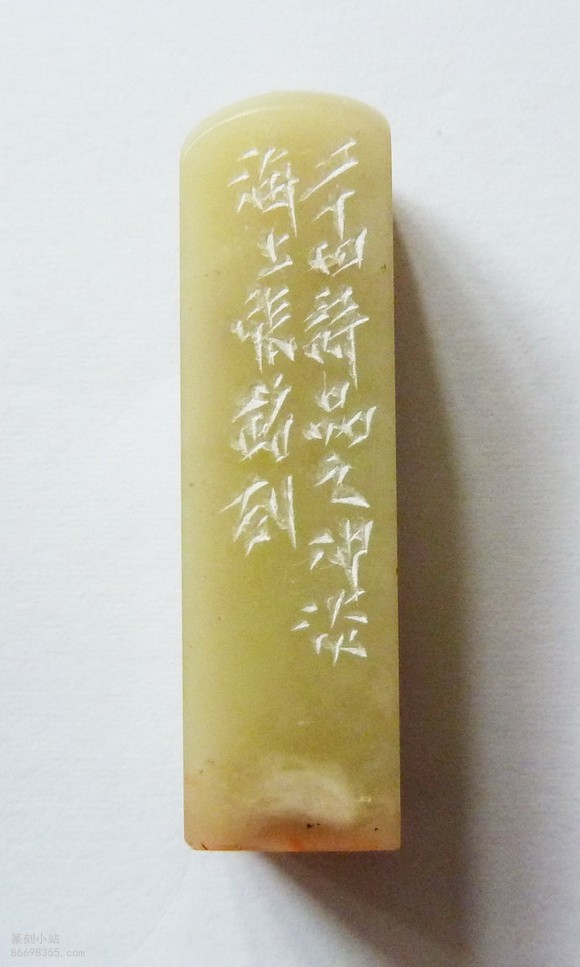 二十四詩品之沖淡
海上張刻
篆刻小站
86698355.com